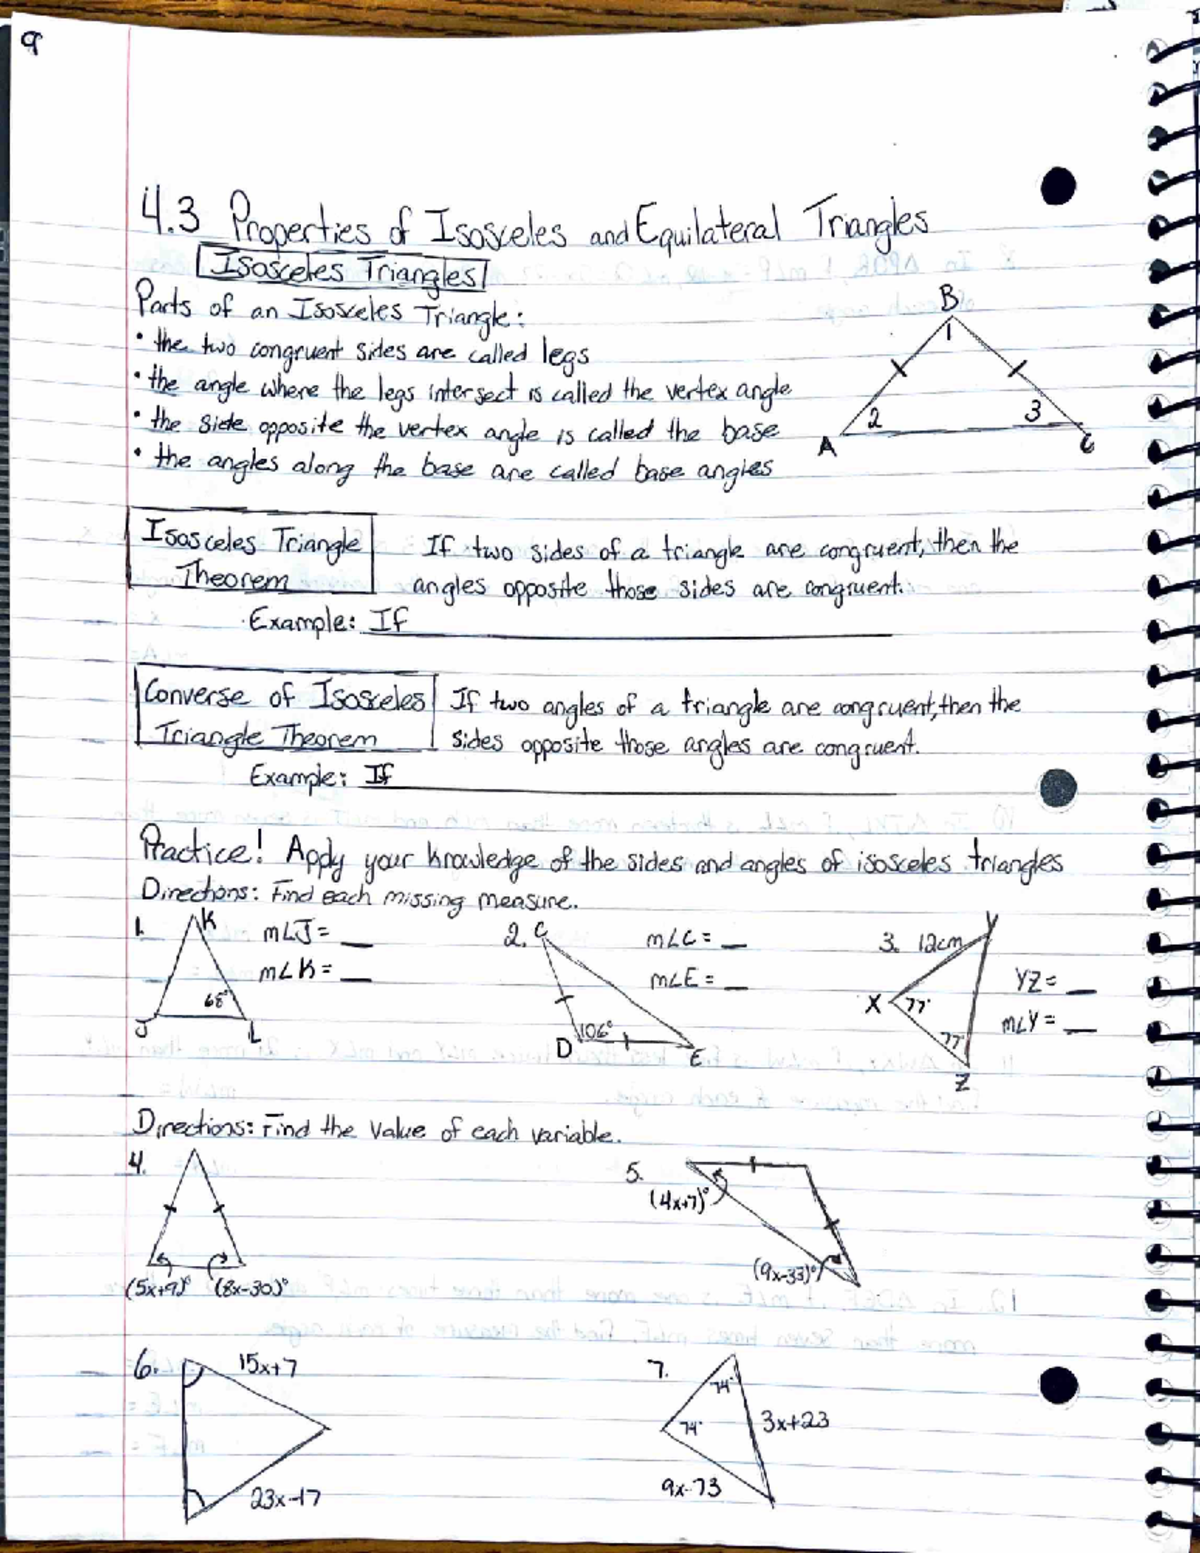 9
4.3 Properties of Isosceles and Equilateral Triangles
Isosceles Triangles
Parts of an Isosceles Triangle:
• the two congruent sides are called legs
• the angle where the legs intersect is called the vertex angle
• the side opposite the vertex angle is called the base
• the angles along the base are called base angles
B
1
2
3
A
C
Isosceles Triangle
Theorem
If two sides of a triangle are congruent, then the
angles opposite those sides are congruent.
Example: If
Converse of Isosceles
Triangle Theorem
If two angles of a triangle are congruent, then the
sides opposite those angles are congruent.
Example: If
Practice! Apply your knowledge of the sides and angles of isosceles triangles
Directions: Find each missing measure.
1. K
m∠J = __
m∠K = __
68°
J
L
2. C
m∠C = __
m∠E = __
106°
D
E
3. 12cm
Y
X
77°
77°
Z
YZ = __
m∠Y = __
Directions: Find the value of each variable.
4.
(5x+9)° (8x-30)°
5.
(4x+7)°
(9x-33)°
6.
15x+7
23x-17
7.
74°
74°
3x+23
9x-73